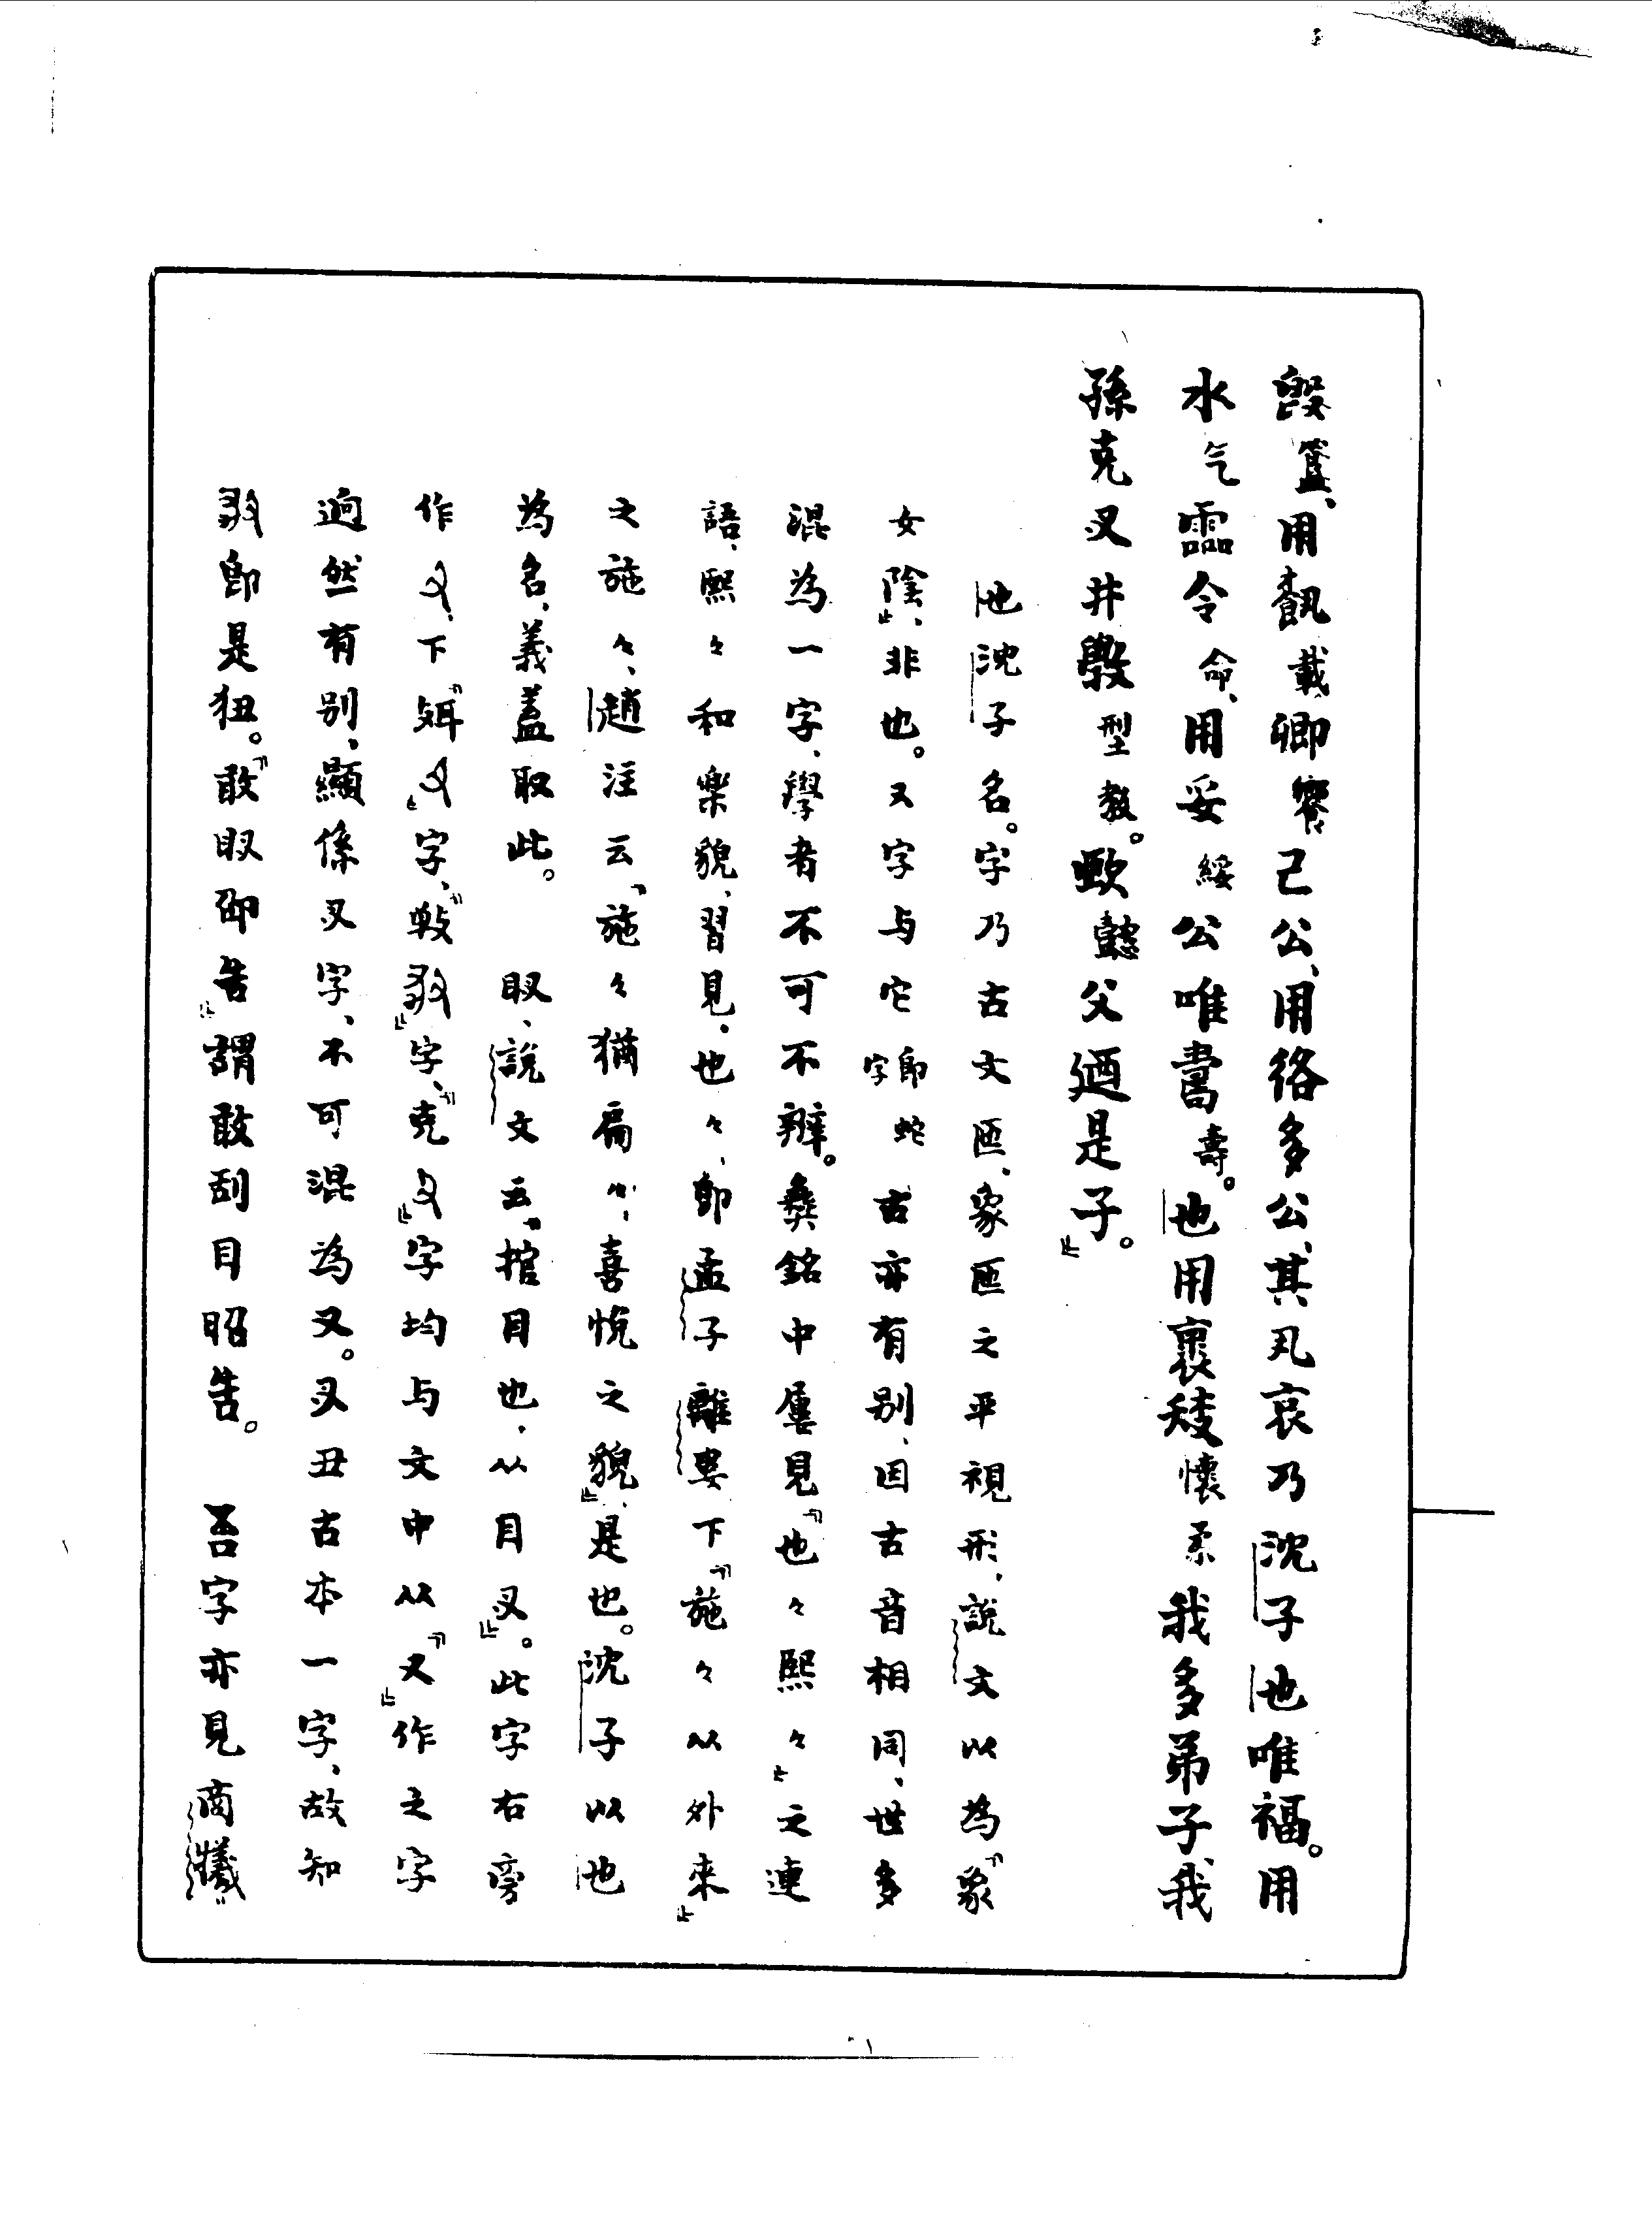 毁簋、用𩛥載卿饗己公、用各多公、其丮哀乃沈子也唯福。用
水气霝令命、用妥綏公唯壽。也用褱懷柔我多弟子我
孫克又井型教。歅懿父廼是子。』
也沈子名。字乃古文匜、象匜之平視形、說文以為『象
女陰』、非也。又字与它字即蛇古亦有别、因古音相同、世多
混為一字、學者不可不辨。彝銘中屢見『也々熙々』之連
語、熙々和樂貌、習見、也々、即孟子離婁下『施々从外來』
之施々、趙注云『施々猶扁々、喜悅之貌』是也。沈子以也
為名、義蓋取此。 䀏、說文云『捾目也、从目叉』。此字右旁
作、下字、字、『克』字均与文中从『又』作之字
迥然有别、顯係叉字、不可混為又。叉丑古本一字、故知
即是狃。『敢䀏卲告』謂敢刮目昭告。 吾字亦見商㰕